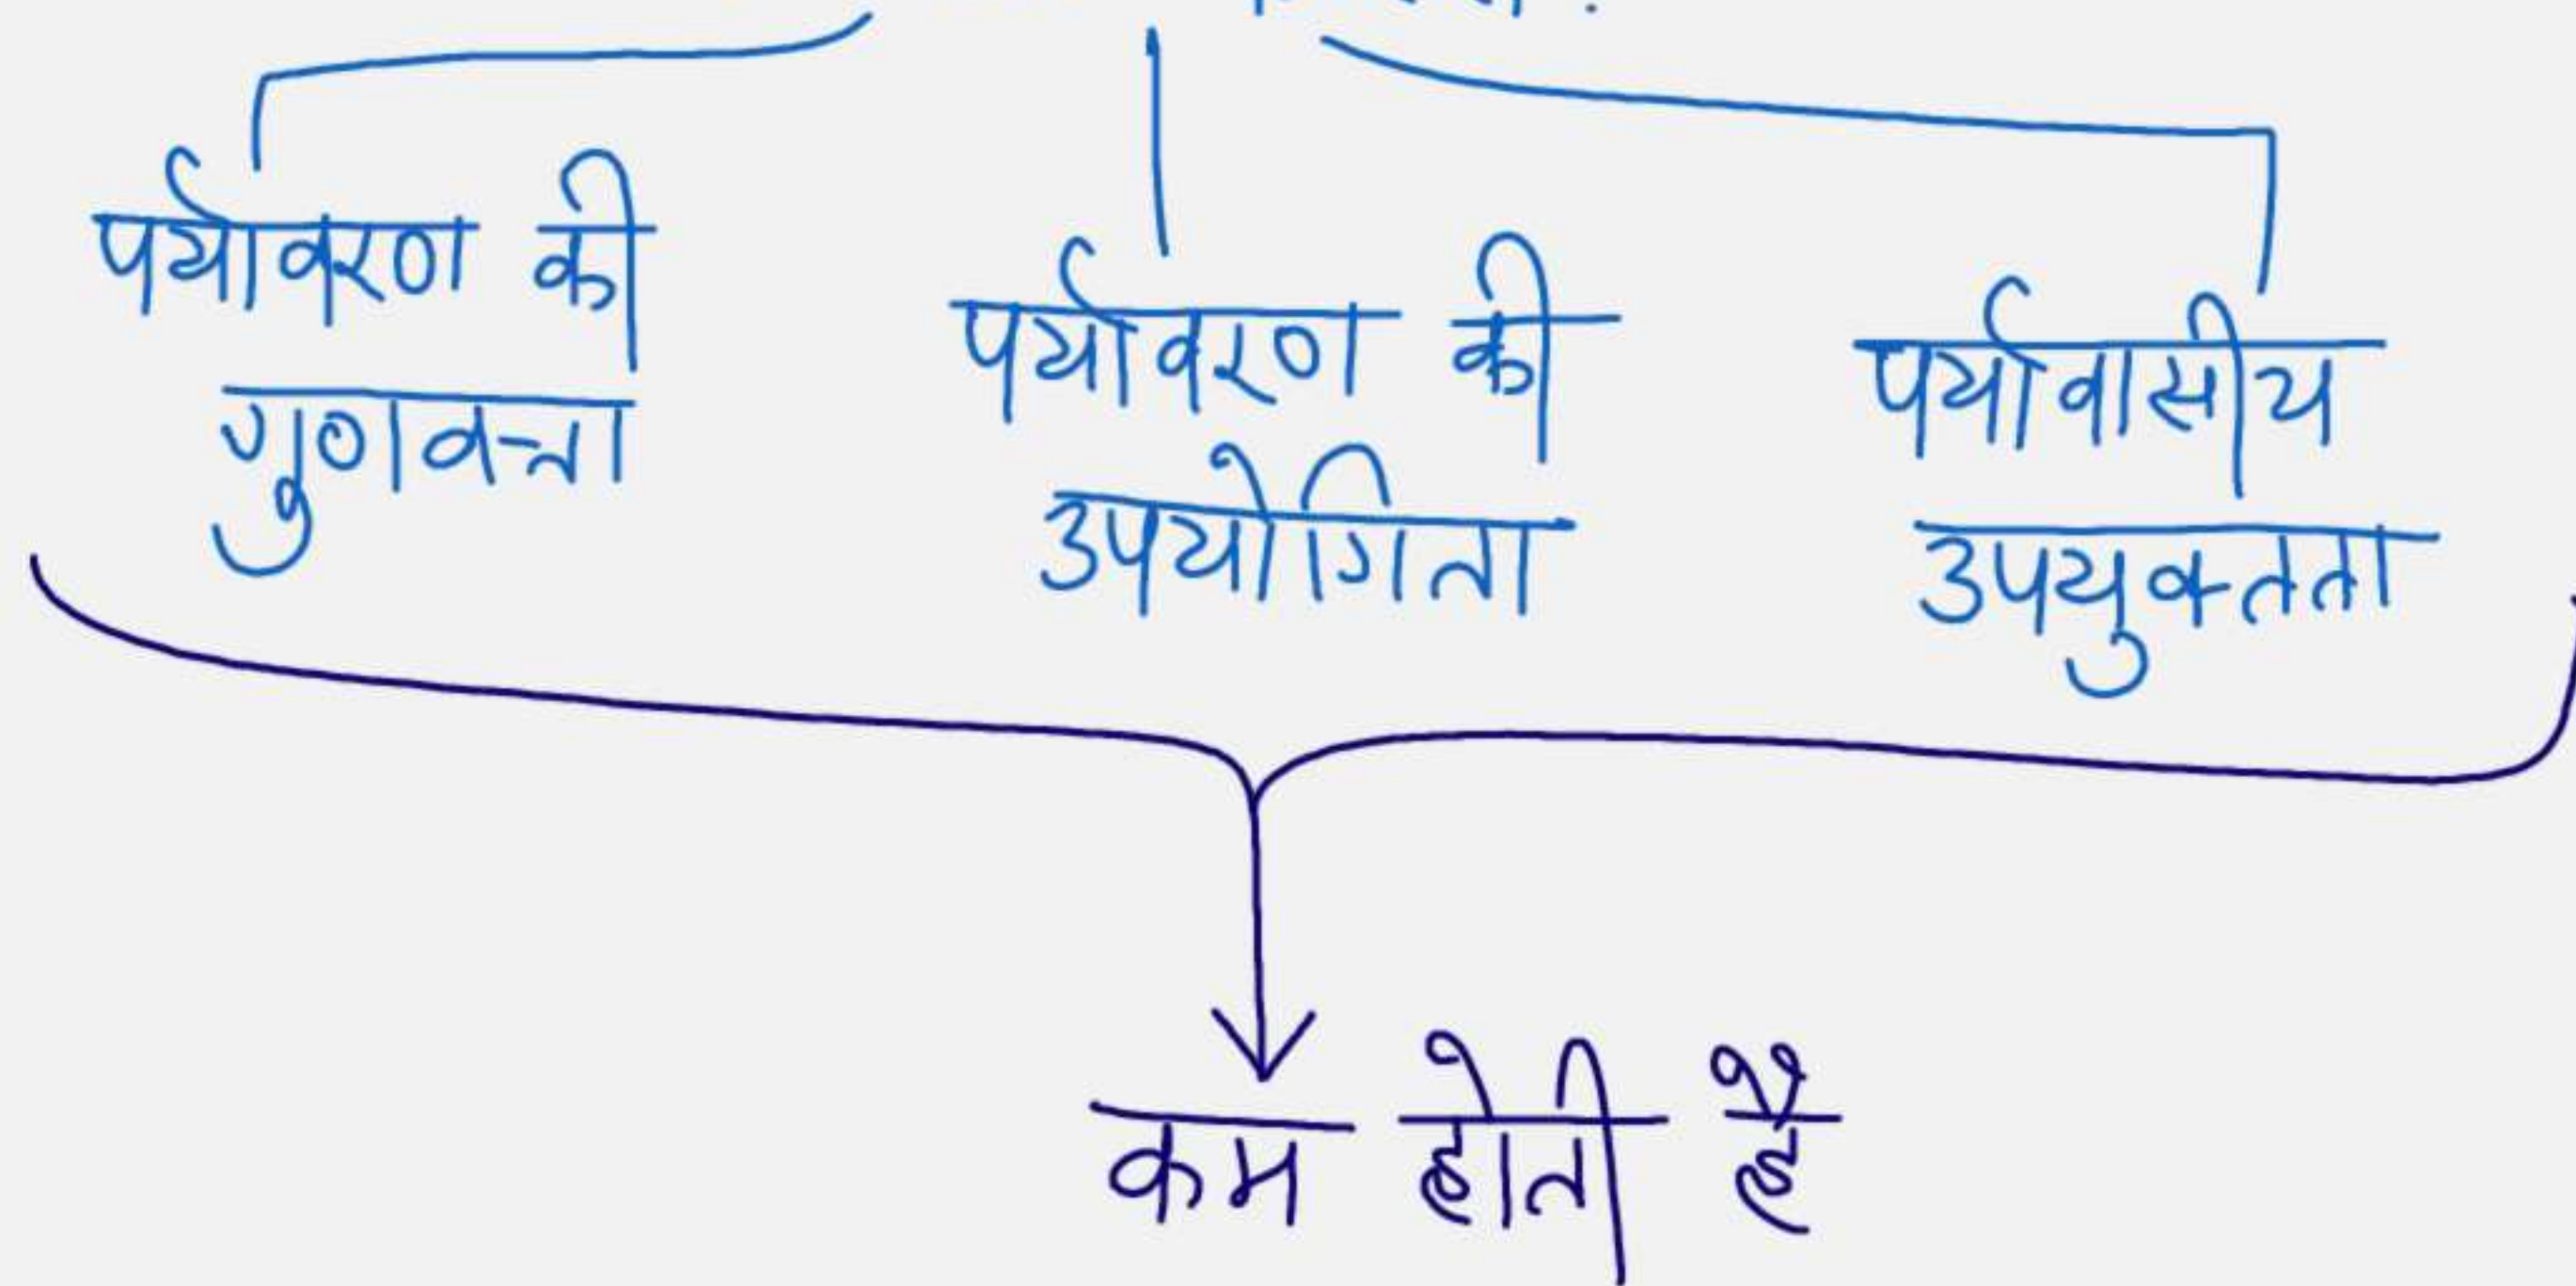 पर्यावरण की
गुणवत्ता
पर्यावरण की
उपयोगिता
पर्यावासीय
उपयुक्तता
कम होती है